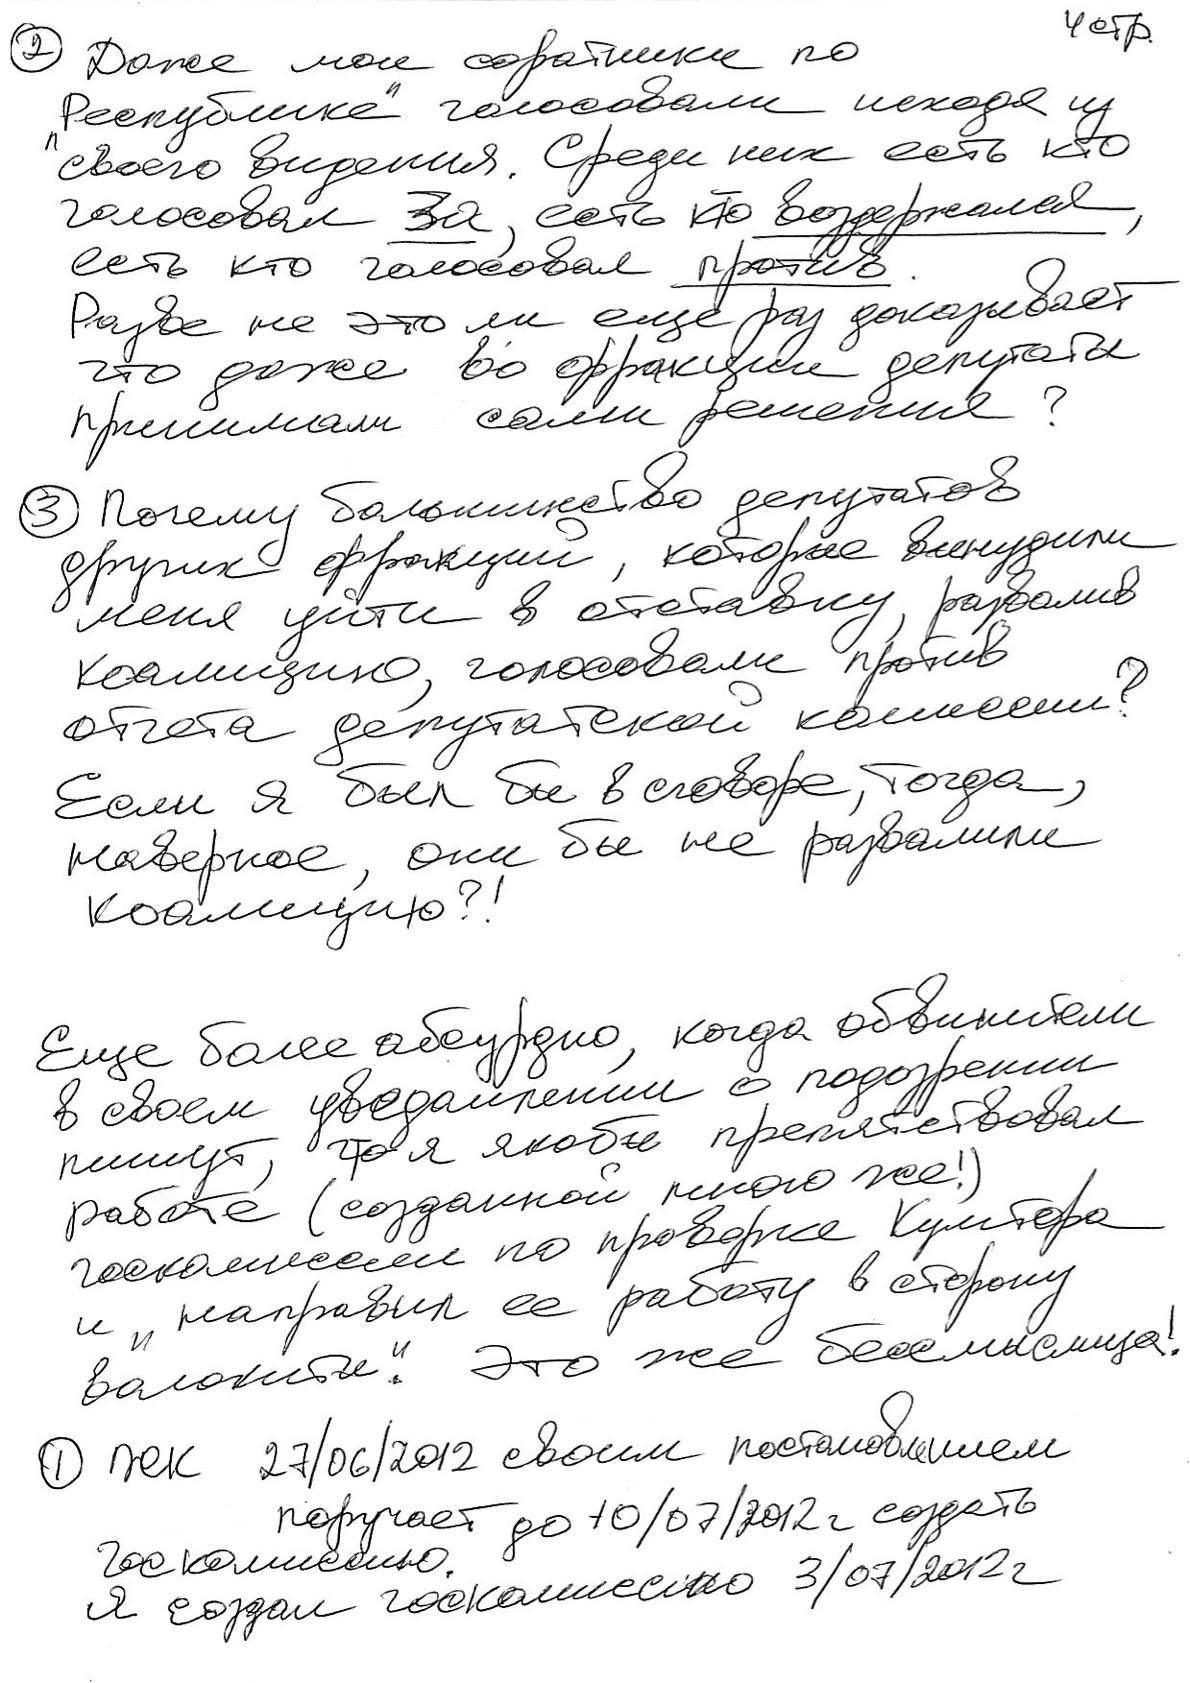 4 стр.
② Даже мои соратники по
"Республике" голосовали исходя из
своего видения. Среди них есть кто
голосовал За, есть кто воздержался,
есть кто голосовал против.
Разве не это ли еще раз доказывает
что даже во фракции депутаты
принимали сами решения?
③ Почему большинство депутатов
других фракций, которые вынудили
меня уйти в отставку, развалив
коалицию, голосовали против
отчета депутатской комиссии?
Если я был бы в сговоре, тогда,
наверное, они бы не развалили
коалицию?!
Еще более абсурдно, когда обвинители
в своем уведомлении о подозрении
пишут, что я якобы препятствовал
работе (созданной мною же!)
госкомиссии по проверке Кумтора
и "направил ее работу в сторону
волокиты". Это же бессмыслица!
① ЖК 27/06/2012 своим постановлением
поручает до 10/07/2012 г создать
госкомиссию.
Я создал госкомиссию 3/07/2012 г